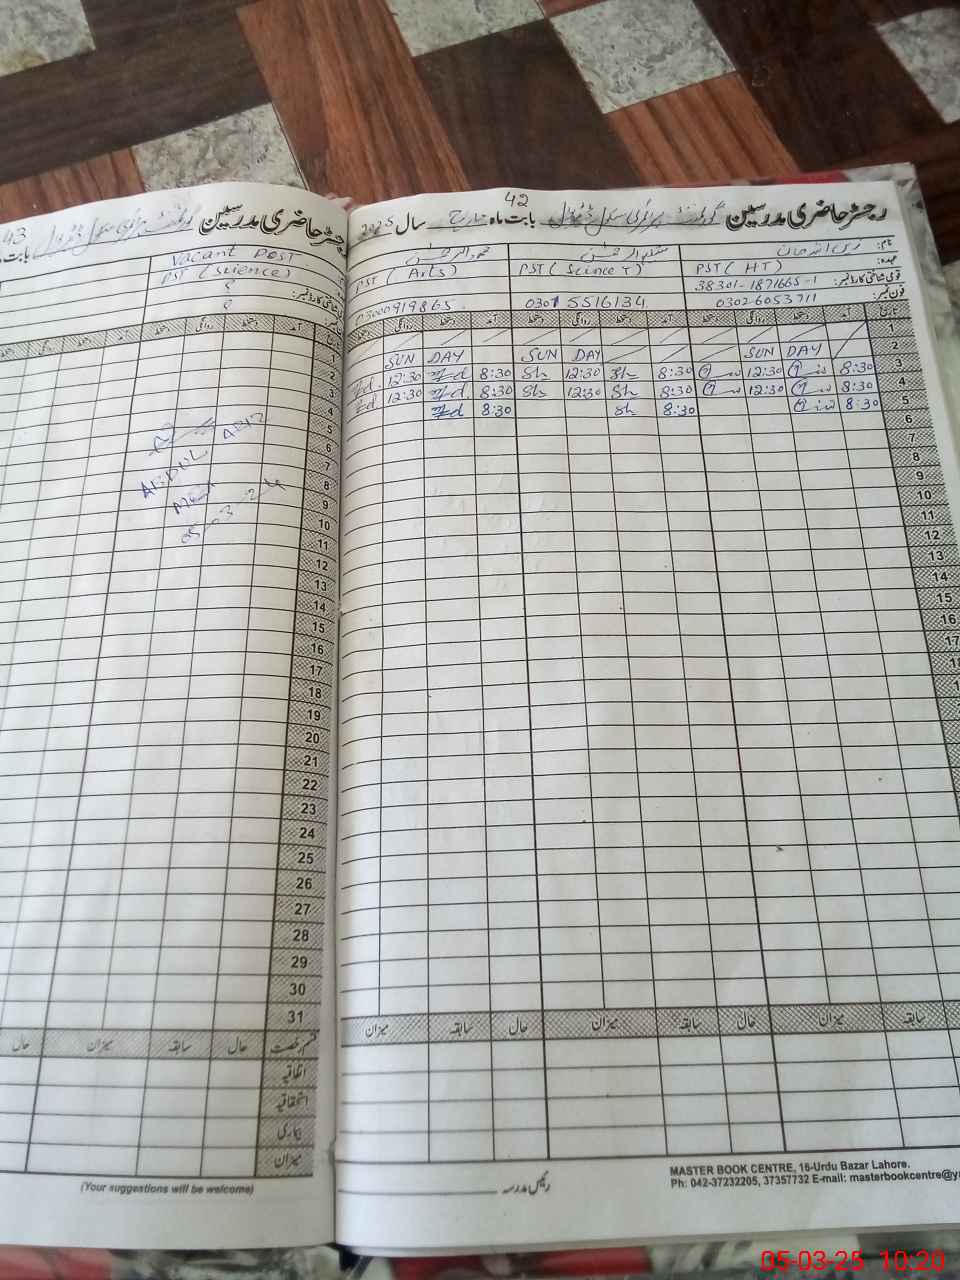 42
رجسٹر حاضری مدرسین گورنمنٹ پرائمری سکول بابت ماہ مارچ سال 2025
نام:
عہدہ: PST (HT) PST (Science T) PST (Arts)
قومی شناختی کارڈ نمبر: 38301-1871665-1
فون نمبر: 0302-6053711 0301 5516134
تاریخ آمد دستخط روانگی دستخط آمد دستخط روانگی دستخط آمد دستخط روانگی دستخط
1
2 SUN DAY SUN DAY SUN DAY
3 8:30 12:30 8:30 Sh 12:30 Sh 8:30 12:30
4 8:30 12:30 8:30 Sh 12:30 Sh 8:30 12:30
5 8:30 8:30 Sh 8:30
6
7
8
9
10
11
12
13
14
15
16
17
18
1
میزان سابقہ حال میزان سابقہ حال میزان سابقہ
رئیس مدرسہ
MASTER BOOK CENTRE, 16-Urdu Bazar Lahore.
Ph: 042-37232205, 37357732 E-mail: masterbookcentre@y
43
رجسٹر حاضری مدرسین گورنمنٹ پرائمری سکول بابت
Vacant Post
PST (Science)
تاریخ آمد دستخط روانگی دستخط
1
2
3
4
5
6
7
8
9
10
11
12
13
14
15
16
17
18
19
20
21
22
23
24
25
26
27
28
29
30
31
ABDUL AZIZ
05-03-24
قسم رخصت حال سابقہ میزان حال
اتفاقیہ
استحقاقیہ
بیماری
میزان
(Your suggestions will be welcome)
05-03-25 10:20